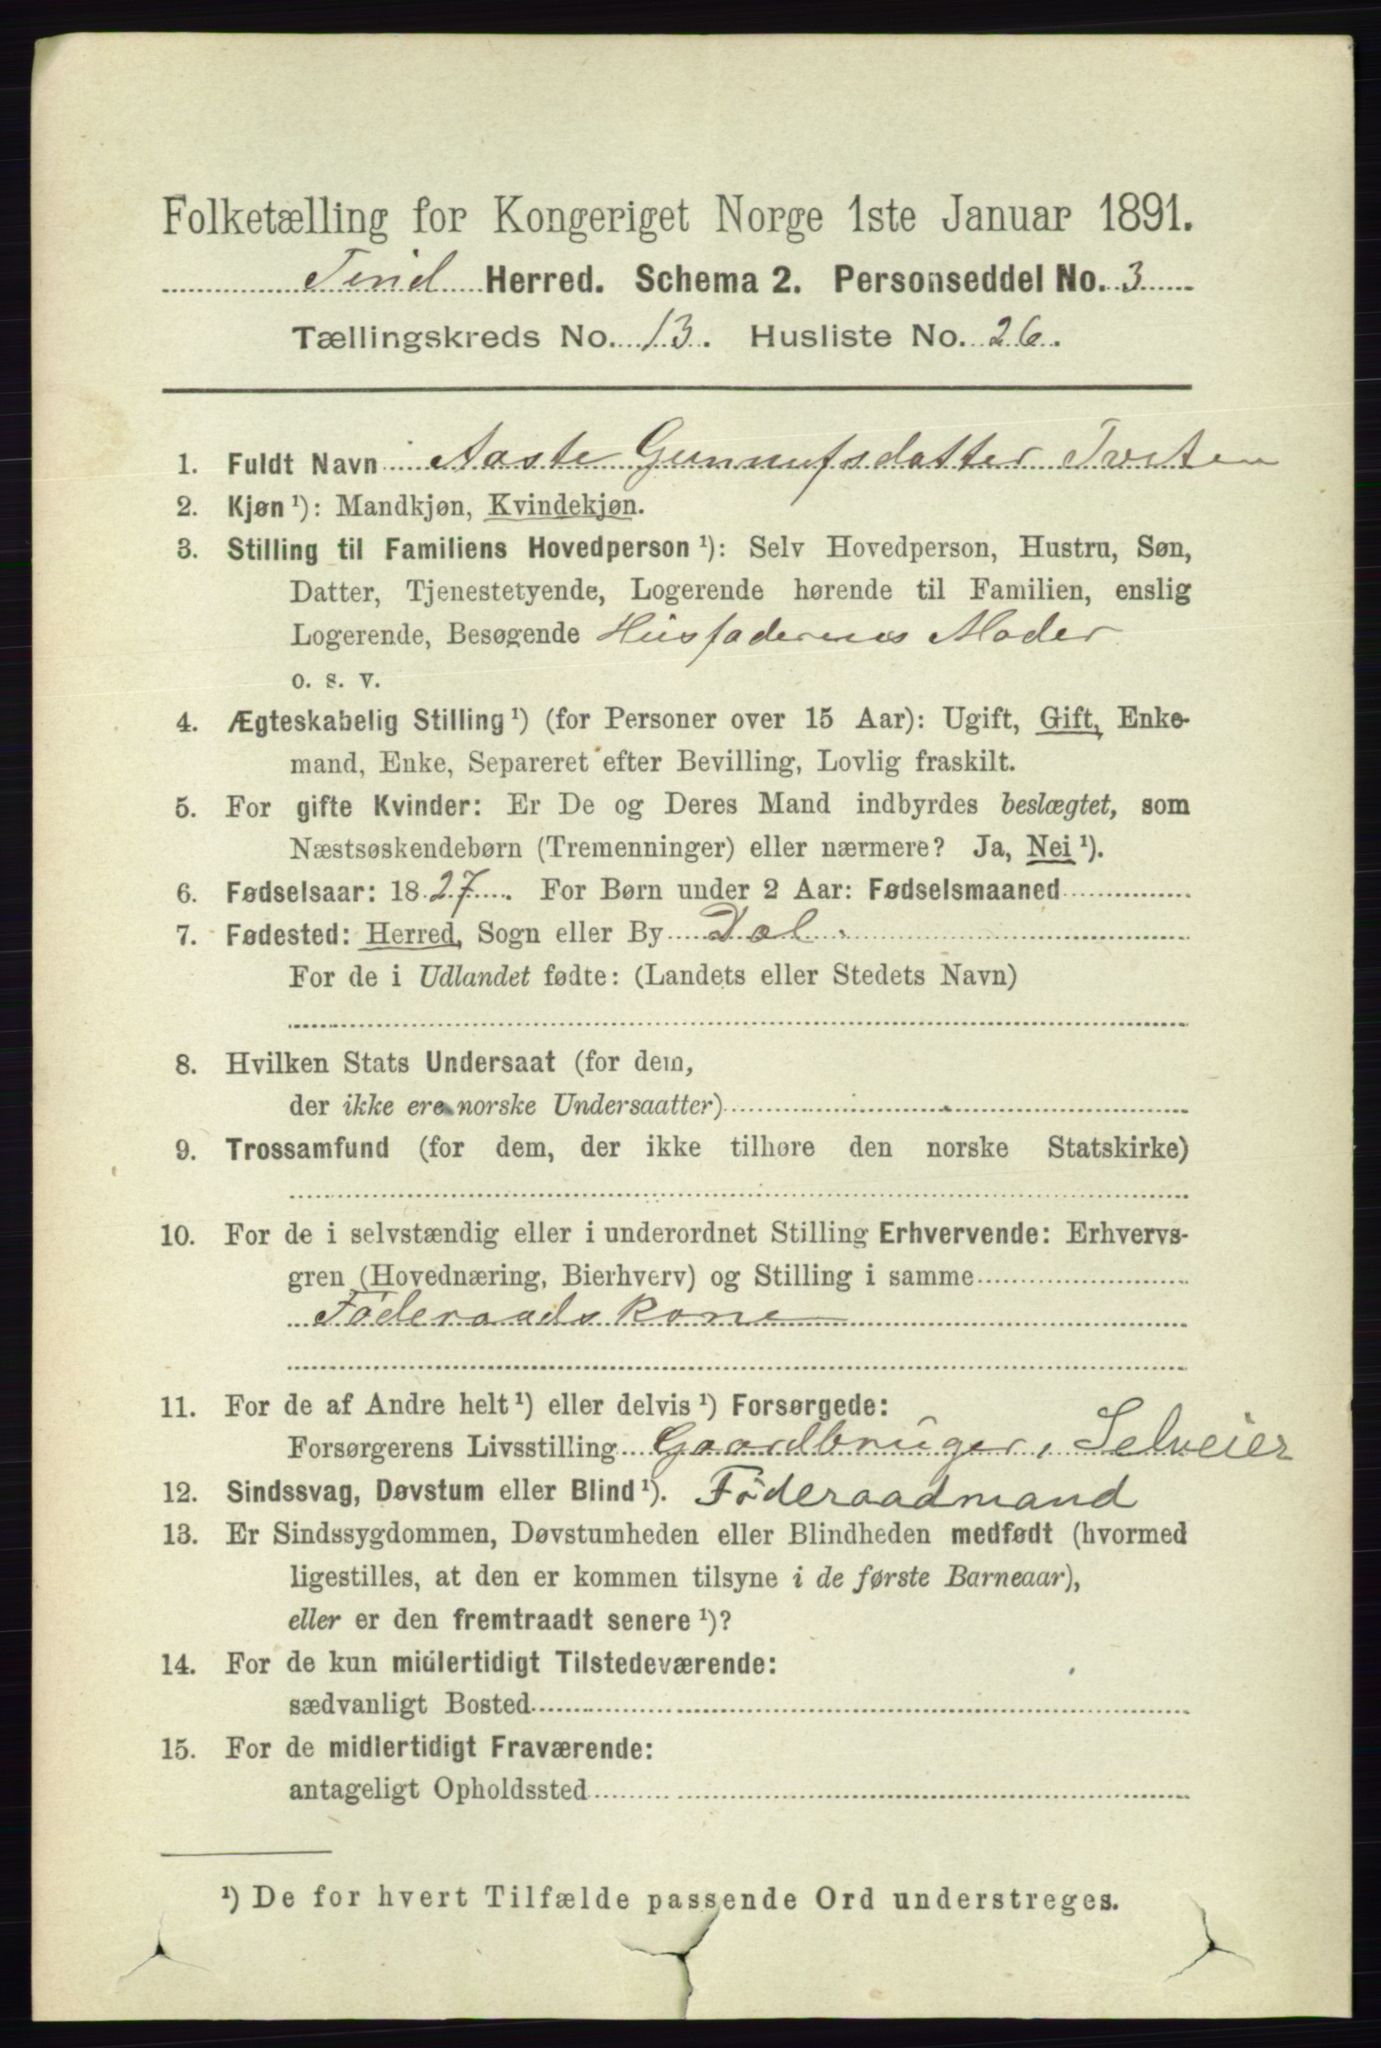 Folketælling for Kongeriget Norge 1ste Januar 1891.
Tind Herred. Schema 2. Personseddel No. 3
Tællingskreds No. 13. Husliste No. 26.
1. Fuldt Navn Aaste Gunnufsdatter Tveten
2. Kjøn ¹): Mandkjøn, Kvindekjøn.
3. Stilling til Familiens Hovedperson ¹): Selv Hovedperson, Hustru, Søn,
Datter, Tjenestetyende, Logerende hørende til Familien, enslig
Logerende, Besøgende Husfaderens Moder
o. s. v.
4. Ægteskabelig Stilling ¹) (for Personer over 15 Aar): Ugift, Gift, Enke-
mand, Enke, Separeret efter Bevilling, Lovlig fraskilt.
5. For gifte Kvinder: Er De og Deres Mand indbyrdes beslægtet, som
Næstsøskendebørn (Tremenninger) eller nærmere? Ja, Nei ¹).
6. Fødselsaar: 1827. For Børn under 2 Aar: Fødselsmaaned
7. Fødested: Herred, Sogn eller By Dal.
For de i Udlandet fødte: (Landets eller Stedets Navn)
8. Hvilken Stats Undersaat (for dem,
der ikke ere norske Undersaatter)
9. Trossamfund (for dem, der ikke tilhøre den norske Statskirke)
10. For de i selvstændig eller i underordnet Stilling Erhvervende: Erhvervs-
gren (Hovednæring, Bierhverv) og Stilling i samme
Føderaadskone
11. For de af Andre helt ¹) eller delvis ¹) Forsørgede:
Forsørgerens Livsstilling Gaardbruger, Selveier
12. Sindssvag, Døvstum eller Blind ¹). Føderaadmand
13. Er Sindssygdommen, Døvstumheden eller Blindheden medfødt (hvormed
ligestilles, at den er kommen tilsyne i de første Barneaar),
eller er den fremtraadt senere ¹)?
14. For de kun midlertidigt Tilstedeværende:
sædvanligt Bosted
15. For de midlertidigt Fraværende:
antageligt Opholdssted
¹) De for hvert Tilfælde passende Ord understreges.